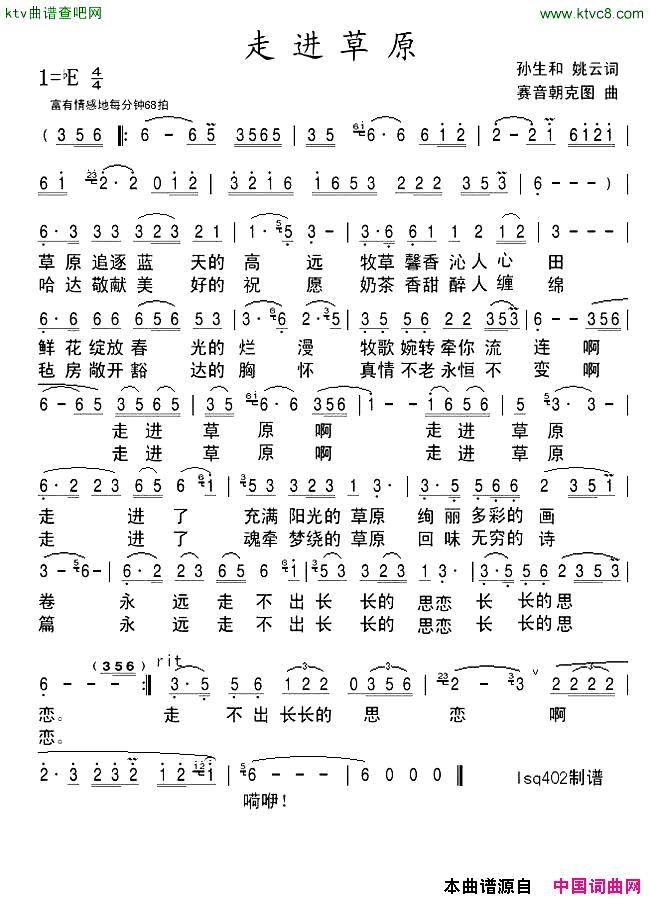 ktv曲谱查吧网
www.ktvc8.com
走进草原
1=♭E 4/4
孙生和 姚云词
赛音朝克图 曲
富有情感地每分钟68拍
( 3 5 6 ‖: 6 - 6 5 3565 | 35 6·6 6 1 2 | 2 - 2 1 6121 |
6 1 2·2 0 1 2 | 3 2 1 6 1 6 5 3 2 2 2 3 5 3 | 6 - - ) |
6·3 3 3 3 2 3 2 1 | 1·3 3 - | 3·6 6 1 1 2 1 2 |
草原追逐蓝 天的高 远 牧草馨香沁人心 田
哈达敬献美 好的祝 愿 奶茶香甜醉人缠 绵
6·3 6 6 6 5 6 0 5 | 3·6 2·3 | 2·2 2 2 2 3 5 3 | 6 - - 3 5 6 |
鲜花绽放春 光的烂 漫 牧歌婉转牵你流 连啊
毡房敞开豁 达的胸 怀 真情不老永恒不 变啊
6 - 6 5 3 5 6 5 | 3 5 6·6 3 5 6 | 1 - - 1 6 5 6 | 5 3·3 - |
走进 草 原 啊 走进 草原
走进 草 原 啊 走进 草原
6·2 2 3 6 5 6 1 | 5 3 3 2 3 1 3· | 3·5 5 6 5 6 2 3 5 1 |
走 进了 充满 阳光的草原 绚丽多彩的画
走 进了 魂牵 梦绕的草原 回味无穷的诗
3 - 6 - | 6·2 2 3 6 5 6 1 | 3 5 3 3 2 3 1 3· | 3·5 5 6 2 3 5 3 |
卷 永远走不出长 长的思恋 长 长的思
篇 永远走不出长 长的思恋 长 长的思
(356) rit
6 - - - :‖ 3·5 5 6 1 2 2 0 3 5 6 | 2 - 3 2 2 2 2 |
恋。 走 不出长长的 思 恋 啊
恋。
2·3 2 3 2 1 2 1 | 6 - - - | 6 0 0 0 ‖
嗬咿!
lsq402制谱
本曲谱源自 中国词曲网